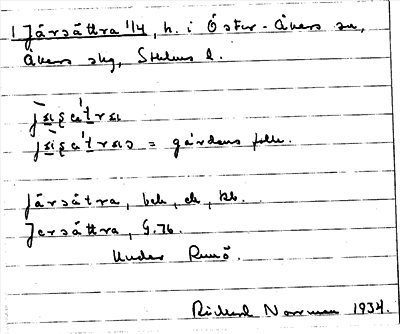 1 Järsättra 1/4, h. i Öster-Åkers sn,
Åkers skg, Sthlms l.
= gårdens folk.
Järsätra, bok, ek, kb.
Jersättra, G.76.
Under Runö.
Rickard Norrman 1934.